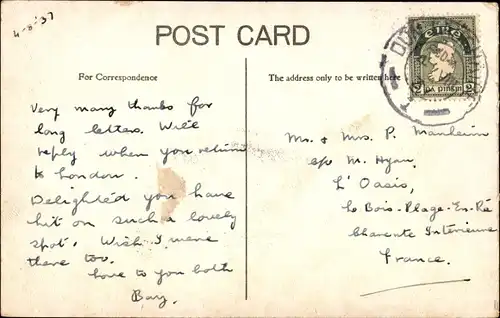 4-8-37
POST CARD
For Correspondence
The address only to be written here
éire
2 DÁ PINGIN 2
Very many thanks for
long letter. Will
reply when you return
to London.
Delighted you have
hit on such a lovely
spot. Wish I were
there too.
Love to you both
Bay.
Mr. & Mrs. P. Manheim
c/o M. Hyan,
L'Oasis,
Le Bois-Plage-En-Ré
Charente Inférieure
France.